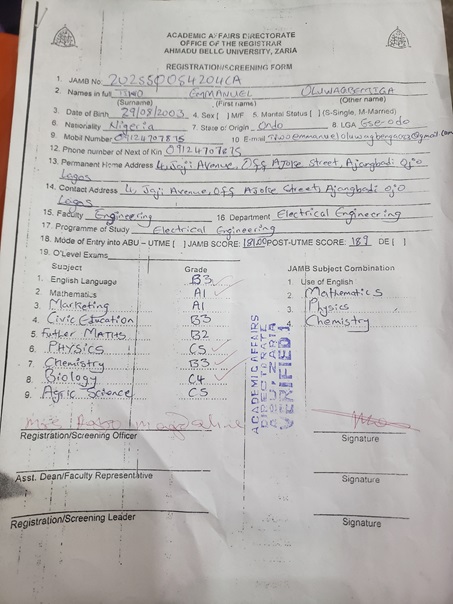 ACADEMIC AFFAIRS DIRECTORATE
OFFICE OF THE REGISTRAR
AHMADU BELLO UNIVERSITY, ZARIA
REGISTRATION/SCREENING FORM
1. JAMB No. 202550054204CA
2. Names in full TIWO EMMANUEL OLUWAGBEMIGA
(Surname) (First name) (Other name)
3. Date of Birth 29/08/2003 4. Sex [ ] M/F 5. Marital Status [ ] (S-Single, M-Married)
6. Nationality Nigeria 7. State of Origin Ondo 8. LGA Ese-odo
9. Mobile Number 09124707875 10 E-mail
12. Phone number of Next of Kin 09124707875
13. Permanent Home Address 4, Jaji Avenue, Off Ajoke Street, Ajangbadi Ojo
Lagos
14. Contact Address 4, Jaji Avenue, Off Ajoke Street, Ajangbadi Ojo
Lagos
15. Faculty Engineering 16 Department Electrical Engineering
17. Programme of Study Electrical Engineering
18. Mode of Entry into ABU - UTME [ ] JAMB SCORE: POST-UTME SCORE: 189 DE [ ]
19. O'Level Exams:
Subject Grade JAMB Subject Combination
1. English Language B3 1 Use of English
2. Mathematics A1 2. Mathematics
3. Marketing A1 3. Physics
4. Civic Education B3 Chemistry
5. Futher MATHS B2
6. PHYSICS C5
7. Chemistry B3
8. Biology C4
9. Agric Science C5
ACADEMIC AFFAIRS
DIRECTORATE
ABU, ZARIA
VERIFIED 1
Registration/Screening Officer Signature
Asst. Dean/Faculty Representative Signature
Registration/Screening Leader Signature